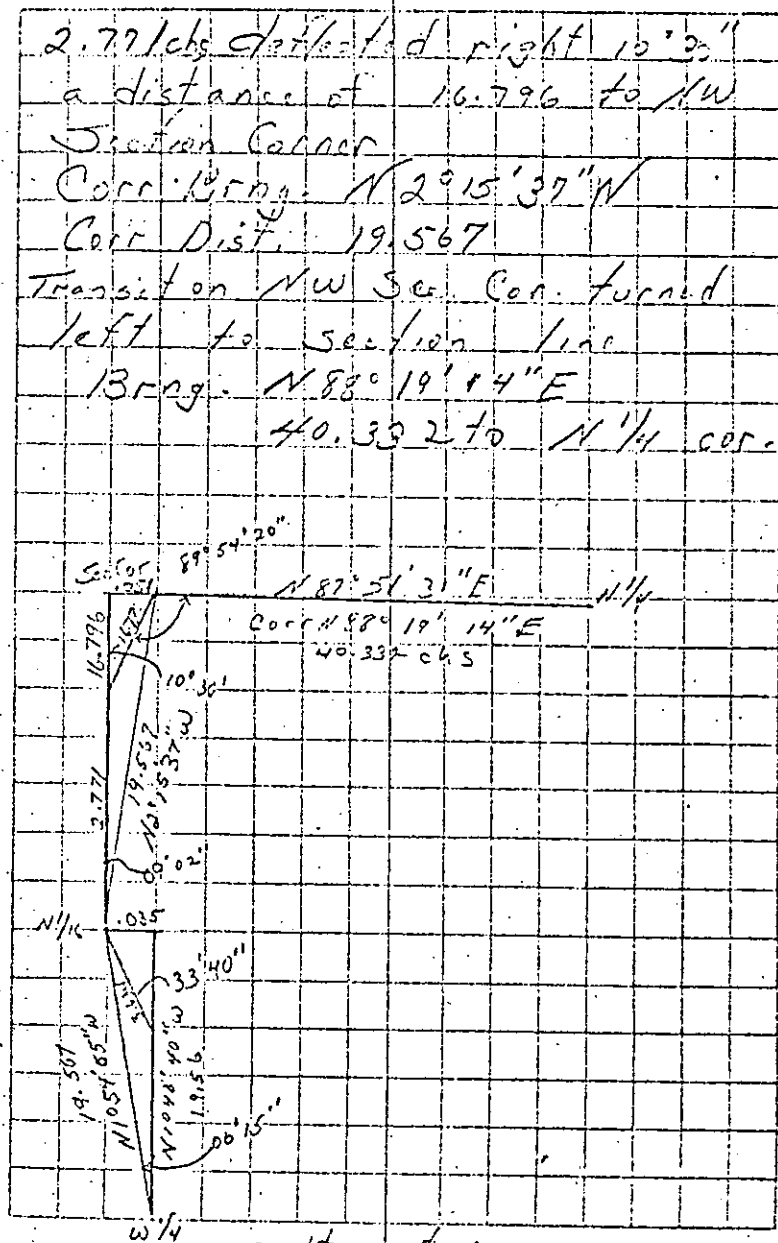 2.771 chs deflected right 10' 30"
a distance of 16.796 to NW
Section Corner
Corr. Brng. N 2° 15' 37" W
Corr Dist. 19.567
Transit on NW Sec. Cor. turned
left to section line
Brng. N 88° 19' 14" E
40.332 to N 1/4 cor.
89° 54' 20"
Sec Cor
.051
N 87° 51' 31" E
N 1/4
Corr N 88° 19' 14" E
40.332 chs
16.796
10' 30'
19.567
N 2° 15' 37" W
2.771
00' 02'
N 1/16
.035
33' 40"
19.567
N 1° 54' 05" W
N 1° 48' 40" W
19.56
06' 15"
W 1/4